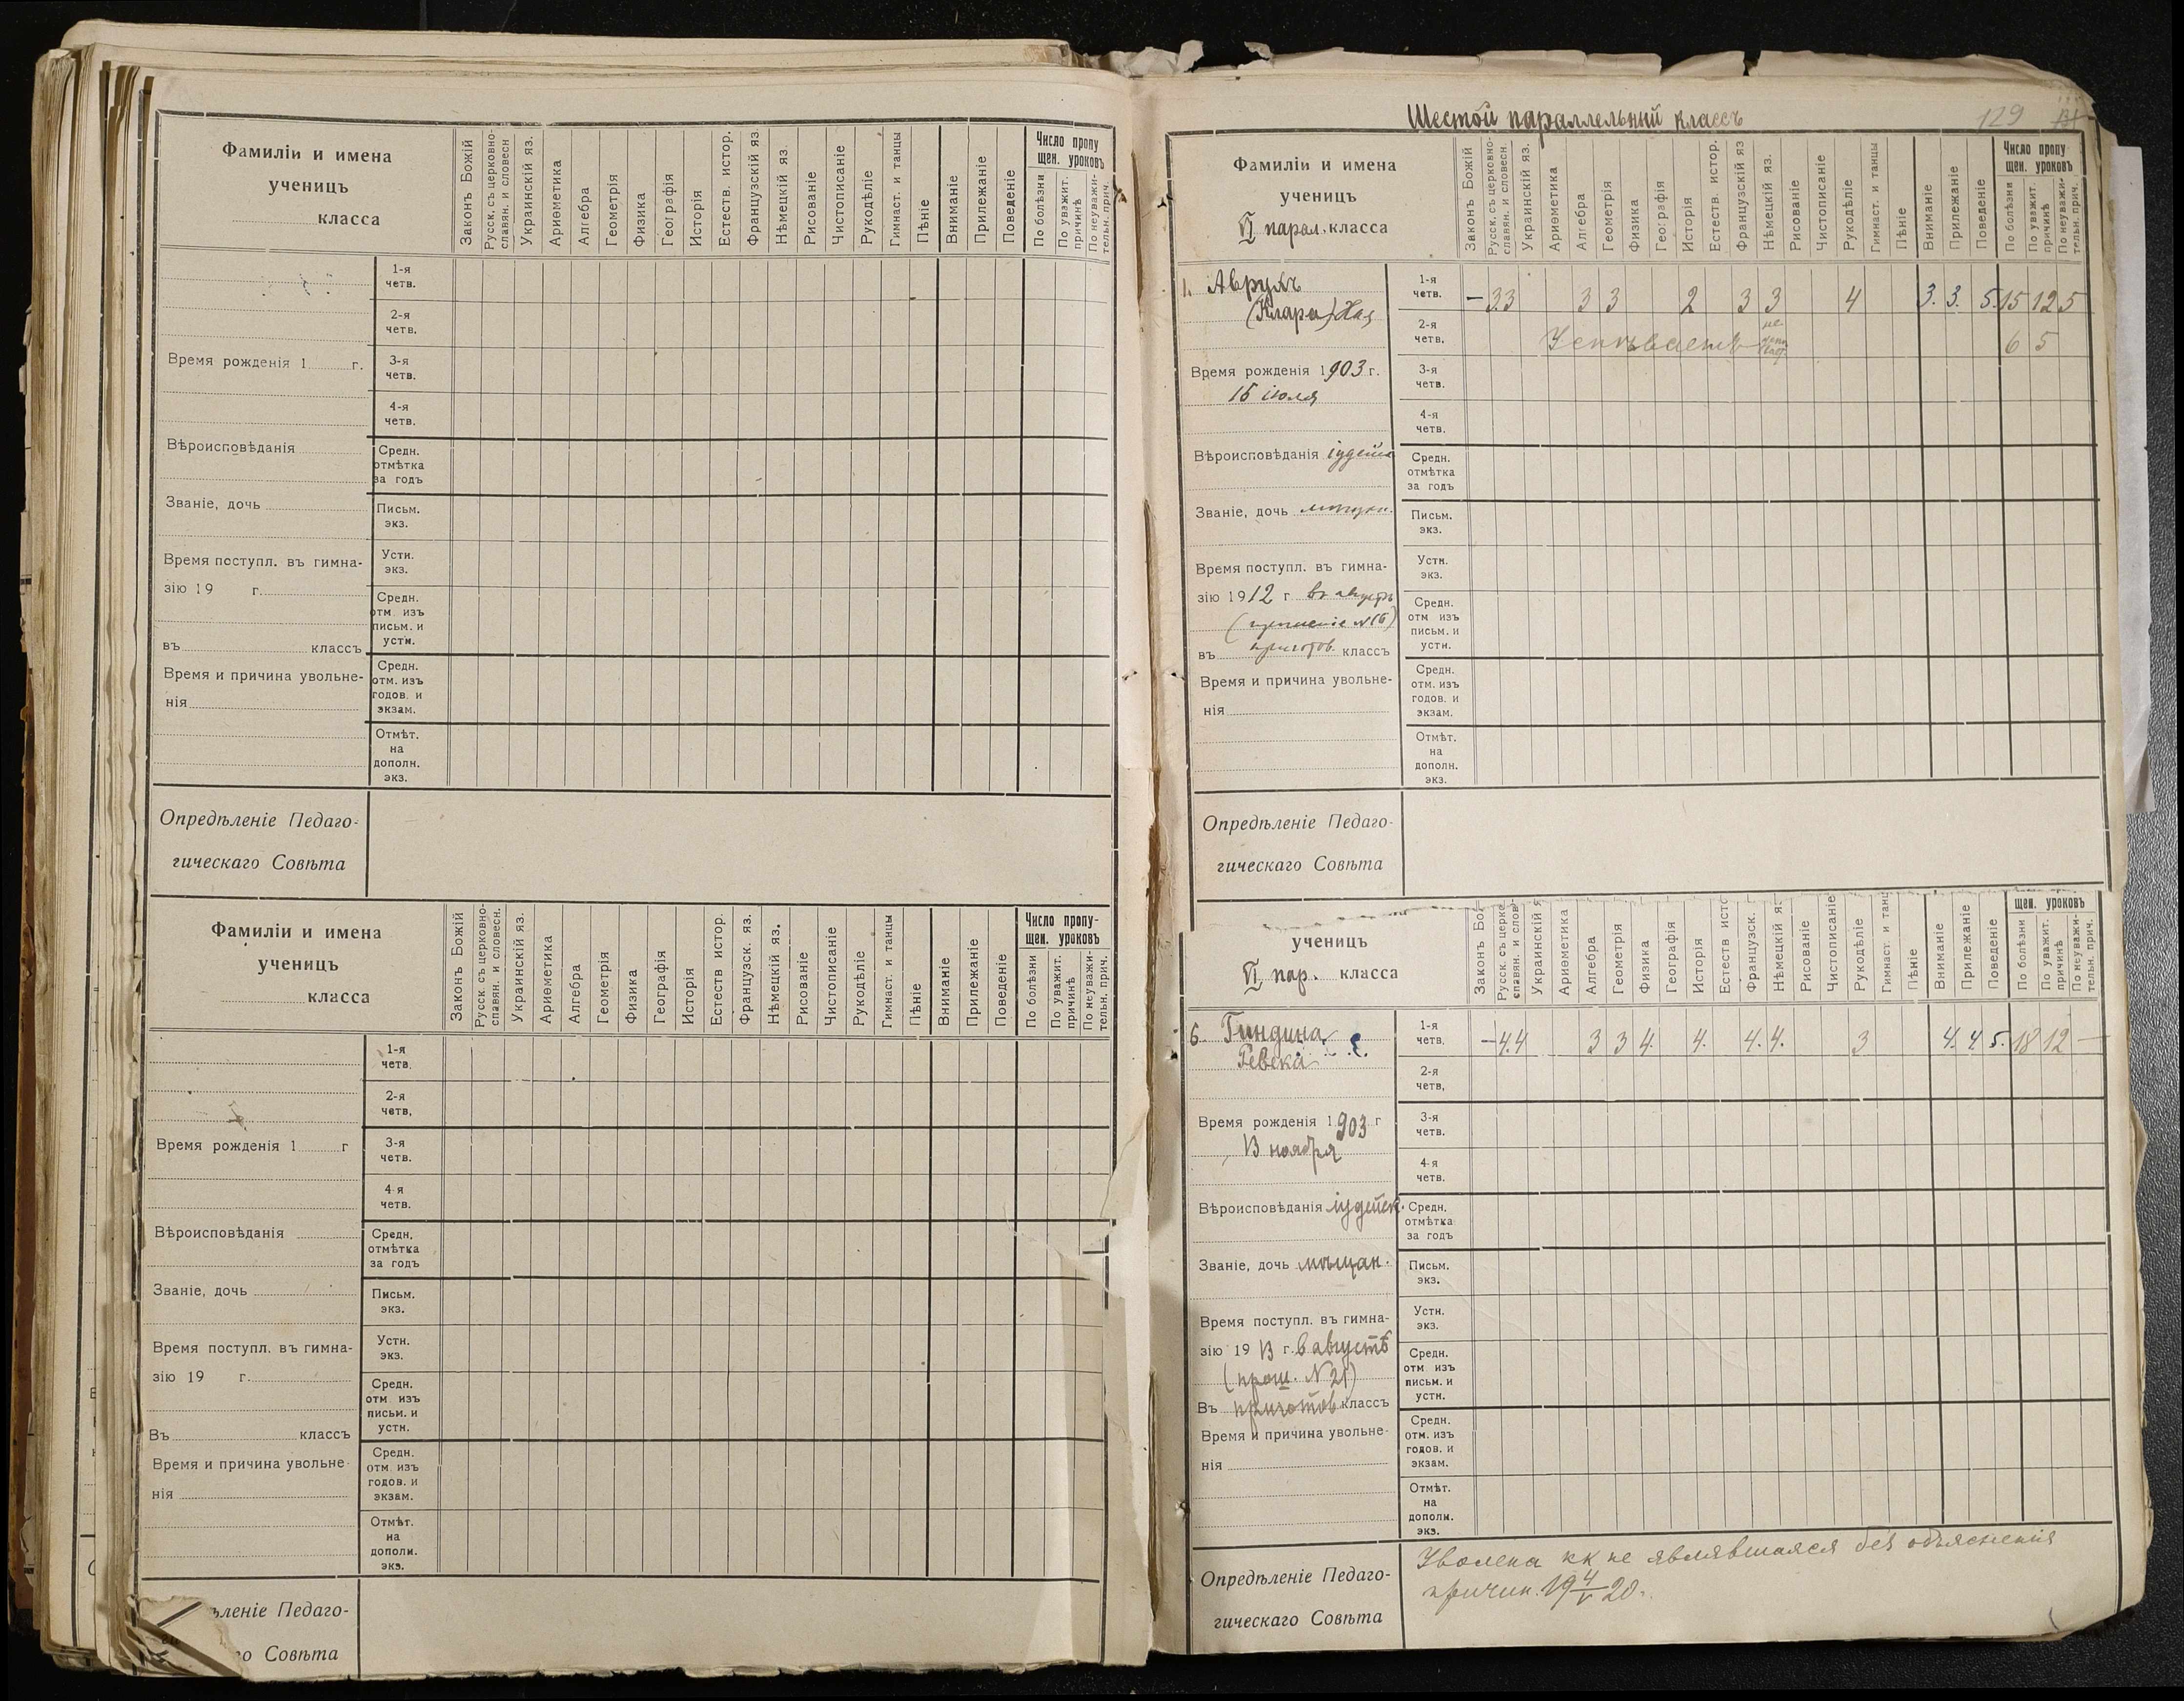 Фамиліи и имена
ученицъ
класса
Законъ Божій
Русск. съ церковно-
славян. и словесн
Украинскій яз.
Ариѳметика
Алгебра
Геометрія
Физика
Географія
Исторія
Естеств. истор.
Французскій яз
Нѣмецкій яз.
Рисованіе
Чистописаніе
Рукодѣліе
Гимнаст. и танцы
Пѣніе
Вниманіе
Прилежаніе
Поведеніе
Число пропу
щен. уроковъ
По болѣзни
По уважит.
причинѣ
По неуважи-
тельн. прич.
1-я
четв.
2-я
четв.
Время рожденія 1 г.
3-я
четв.
4-я
четв.
Вѣроисповѣданія
Средн.
отмѣтка
за годъ
Званіе, дочь
Письм.
экз.
Время поступл. въ гимна-
зію 19 г.
Устн.
экз.
Средн.
отм изъ
письм. и
устн.
въ классъ
Время и причина увольне-
нія
Средн.
отм. изъ
годов. и
экзам.
Отмѣт.
на
дополн.
экз.
Опредѣленіе Педаго-
гическаго Совѣта
Фамиліи и имена
ученицъ
класса
Законъ Божій
Русск съ церковно-
славян. и словесн.
Украинскій яз.
Ариѳметика
Алгебра
Геометрія
Физика
Географія
Исторія
Естеств истор.
Французск. яз.
Нѣмецкій яз.
Рисованіе
Чистописаніе
Рукодѣліе
Гимнаст. и танцы
Пѣніе
Вниманіе
Прилежаніе
Поведеніе
Число пропу-
щен. уроковъ
По болѣзни
По уважит.
причинѣ
По неуважи-
тельн. прич.
1-я
четв.
2-я
четв.
Время рожденія 1 г
3-я
четв.
4 я
четв.
Вѣроисповѣданія
Средн.
отмѣтка
за годъ
Званіе, дочь
Письм.
экз.
Время поступл. въ гимна-
зію 19 г.
Устн.
экз.
Средн.
отм изъ
письм. и
устн.
Въ классъ
Время и причина увольне-
нія
Средн.
отм изъ
годов. и
экзам.
Отмѣт.
на
дополн.
экз.
ѣленіе Педаго-
го Совѣта
Шестой параллельный классъ
129
Фамиліи и имена
ученицъ
VI парал. класса
Законъ Божій
Русск. съ церковно-
славян. и словесн.
Украинскій яз.
Ариѳметика
Алгебра
Геометрія
Физика
Географія
Исторія
Естеств. истор.
Французскій яз
Нѣмецкій яз.
Рисованіе
Чистописаніе
Рукодѣліе
Гимнаст. и танцы
Пѣніе
Вниманіе
Прилежаніе
Поведеніе
Число пропу-
щен. уроковъ
По болѣзни
По уважит.
причинѣ
По неуважи-
тельн. прич.
1. Аврухъ
(Клара) Хая
1-я
четв. — 3.3 3 3 2 3 3 4 3. 3. 5. 15 12 5
2-я
четв. Успѣваетъ 6 5
Время рожденія 1903 г.
16 іюля
3-я
четв.
4-я
четв.
Вѣроисповѣданія іудейск
Средн.
отмѣтка
за годъ
Званіе, дочь мѣщан.
Письм.
экз.
Время поступл. въ гимна-
зію 1912 г въ августѣ
(прошеніе №16)
въ приготов. классъ
Устн.
экз.
Средн.
отм изъ
письм. и
устн.
Время и причина увольне-
нія
Средн.
отм. изъ
годов. и
экзам.
Отмѣт.
на
дополн.
экз.
Опредѣленіе Педаго-
гическаго Совѣта
ученицъ
VI пар. класса
Законъ Бо
Русск съ церко
славян. и слов
Украинскій я
Ариѳметика
Алгебра
Геометрія
Физика
Географія
Исторія
Естеств исто
Французск.
Нѣмецкій яз
Рисованіе
Чистописаніе
Рукодѣліе
Гимнаст. и танц
Пѣніе
Вниманіе
Прилежаніе
Поведеніе
щен. уроковъ
По болѣзни
По уважит.
причинѣ
По неуважи-
тельн. прич.
6. Гиндина
Ревека
1-я
четв. — 4.4 3 3 4. 4. 4. 4. 3 4. 4. 5. 18 12 —
2-я
четв.
Время рожденія 1903 г
13 ноября
3-я
четв.
4-я
четв.
Вѣроисповѣданія іудейск.
Средн.
отмѣтка
за годъ
Званіе, дочь мѣщан.
Письм.
экз.
Время поступл. въ гимна-
зію 19 13 г. въ августѣ
(прош. №21)
Въ приготов классъ
Устн.
экз.
Средн.
отм изъ
письм. и
устн.
Время и причина увольне-
нія
Средн.
отм. изъ
годов. и
экзам.
Отмѣт.
на
дополн.
экз.
Опредѣленіе Педаго-
гическаго Совѣта
Уволена кк не являвшаяся без объяснения
причин. 19 4/V 20.